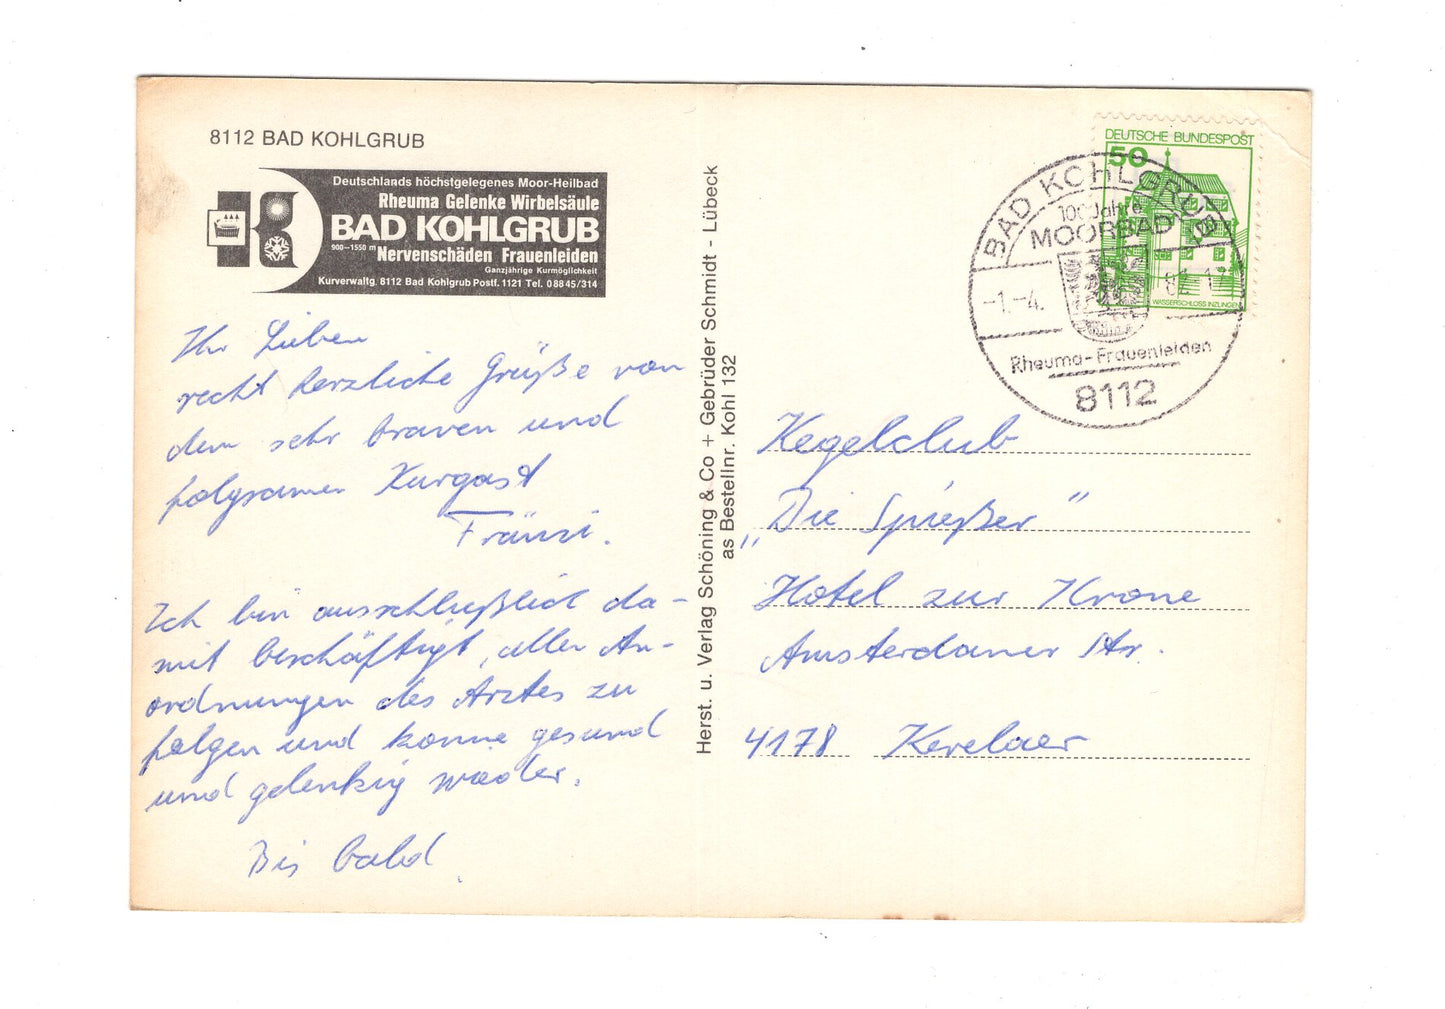 8112 BAD KOHLGRUB
Deutschlands höchstgelegenes Moor-Heilbad
Rheuma Gelenke Wirbelsäule
BAD KOHLGRUB
900–1550 m Nervenschäden Frauenleiden
Ganzjährige Kurmöglichkeit
Kurverwaltg. 8112 Bad Kohlgrub Postf. 1121 Tel. 08845/314
Ihr Lieben
recht herzliche Grüße von
dem sehr braven und
folgsamen Kurgast
Fränzi.
Ich bin ausschließlich da-
mit beschäftigt, allen An-
ordnungen des Arztes zu
folgen und komme gesund
und gelenkig wieder.
Bis bald.
Herst. u. Verlag Schöning & Co + Gebrüder Schmidt - Lübeck
as Bestellnr. Kohl 132
DEUTSCHE BUNDESPOST
50
WASSERSCHLOSS INZLINGEN
BAD KOHLGRUB
100 Jahre
MOORBAD
-1.-4.
Rheuma-Frauenleiden
8112
Kegelclub
„Die Spießer"
Hotel zur Krone
Amsterdamer Str.
4178 Kevelaer